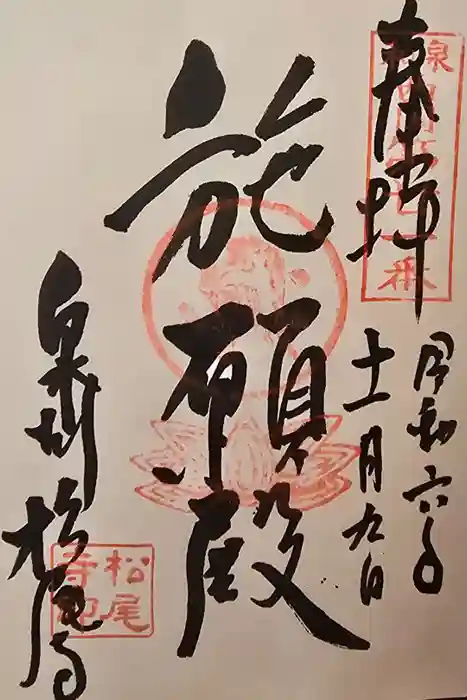 奉拝
令和六年
十一月九日
施願殿
泉州 松尾寺
松尾
寺印